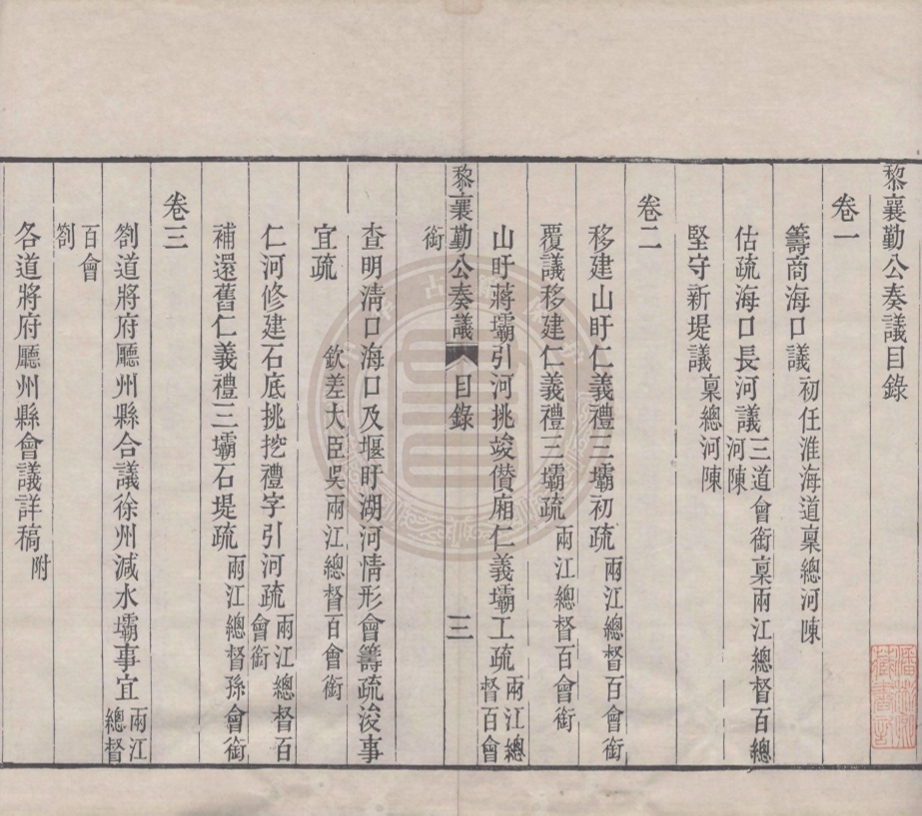 黎襄勤公奏議目錄
卷一
籌商海口議 初任淮海道稟總河陳
估疏海口長河議 三道會銜稟兩江總督百總河陳
堅守新堤議 稟總河陳
卷二
移建山盱仁義禮三壩初疏 兩江總督百會銜
覆議移建仁義禮三壩疏 兩江總督百會銜
山盱蔣壩引河挑竣儹廂仁義壩工疏 兩江總督百會
銜
黎襄勤公奏議 目錄 三
查明清口海口及堰盱湖河情形會籌疏浚事
宜疏 欽差大臣吳兩江總督百會銜
仁河修建石底挑挖禮字引河疏 兩江總督百會銜
補還舊仁義禮三壩石堤疏 兩江總督孫會銜
卷三
劄道將府廳州縣合議徐州減水壩事宜 兩江總督
百會劄
各道將府廳州縣會議詳稿 附